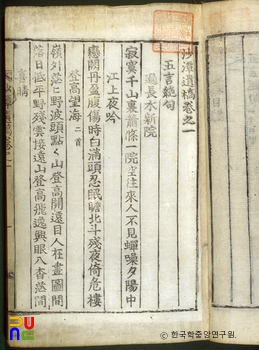 沙潭遺稿卷之一
五言絕句
過長水新院
寂寞千山裏蕭條一院空往來人不見蟬噪夕陽中
江上夜吟
戀闕丹盈腹傷時白滿頭忍眠瞻北斗殘夜倚危樓
登高望海 二首
嶺外茫茫野波頭點〻山登高開遠目人在畫圖間
落日低平野殘雲接遠山登高飛逸興眼入杳茫間
喜晴
ⓒ 한국학중앙연구원